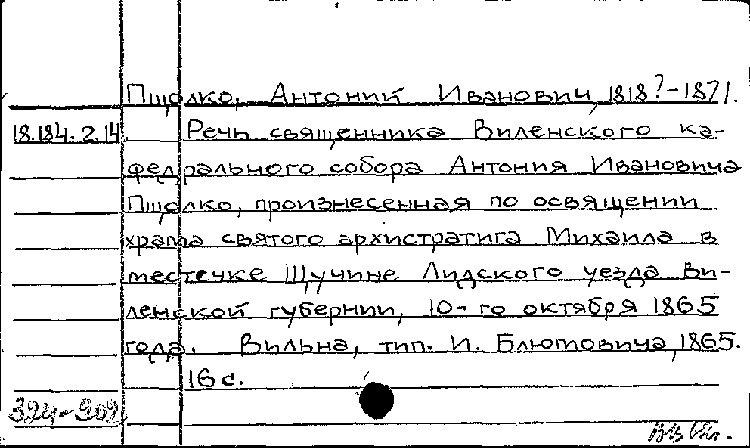 Пщолко, Антоний Иванович, 1818?-1871.
18.184.2.14. Речь священника Виленского ка-
федрального собора Антония Ивановича
Пщолко, произнесенная по освящении
храма святого архистратига Михаила в
местечке Щучине Лидского уезда Ви-
ленской губернии, 10-го октября 1865
года. Вильна, тип. И. Блютовича, 1865.
16 с.